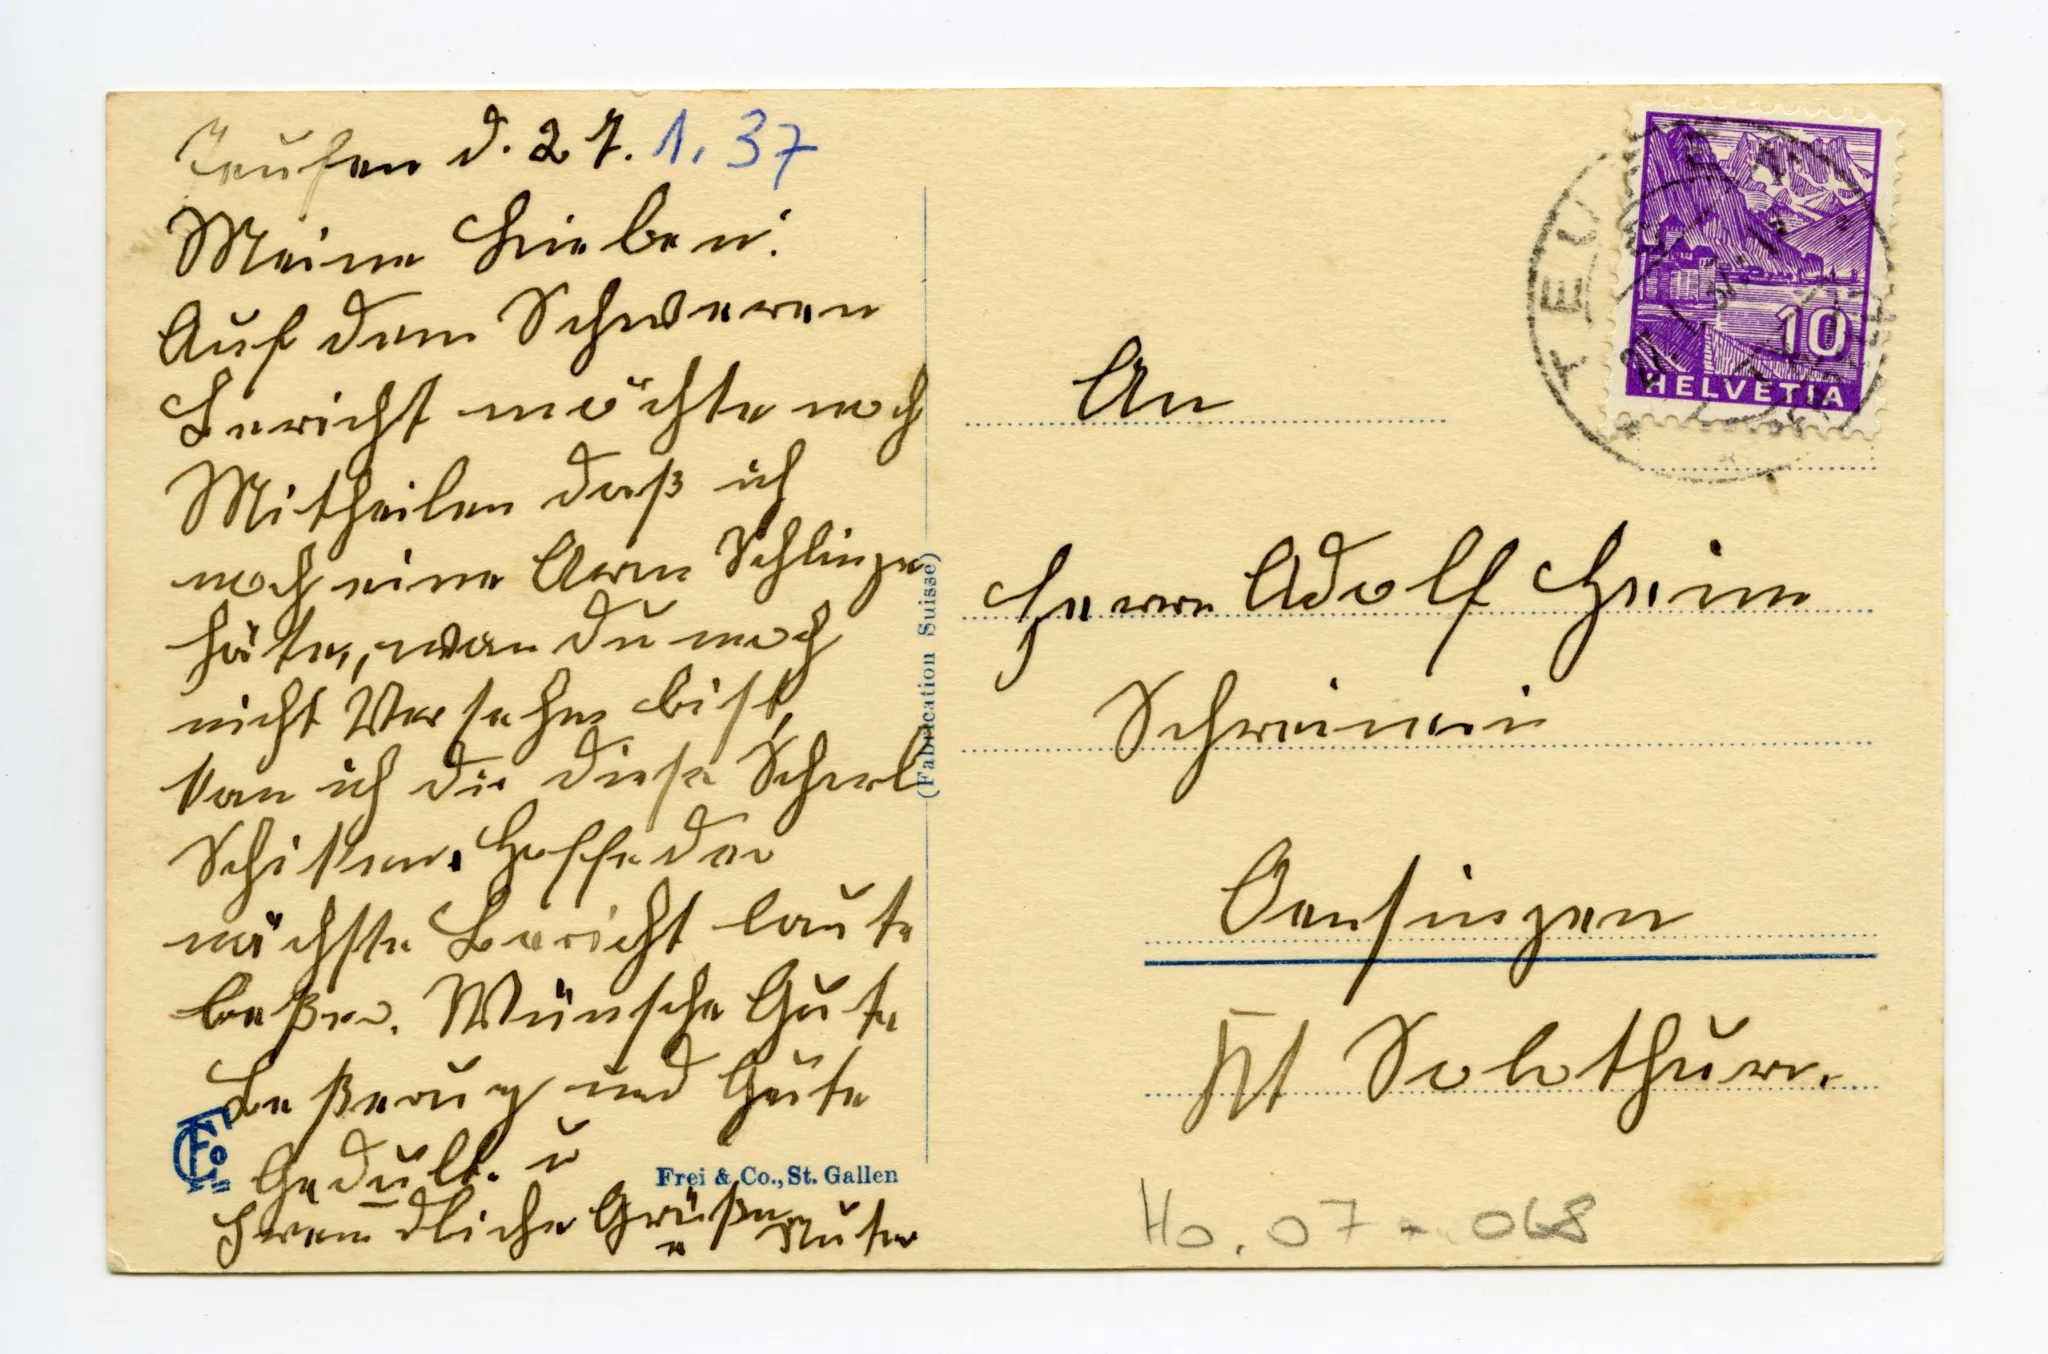 Teufen d. 27. 1. 37
Meine Lieben!
Auf dem Schweren
Bericht möchte noch
Mittheilen daß ich
noch eine Arm Schlinge
häte, wan Du noch
nicht Versehen bist,
kan ich dir diese
Schiken. Hoffe der
nächste Bericht laute
beßer. Wünsche Gute
Beßerung und Gute
Gedult. u
freundliche Grüße Muter
Frei & Co., St. Gallen
(Fabrication Suisse)
TEUFEN
27. I. 37
10
HELVETIA
An
Herrn Adolf Heim
Schreinerei
Oensingen
Kt Solothurn.
Ho. 07 - 068